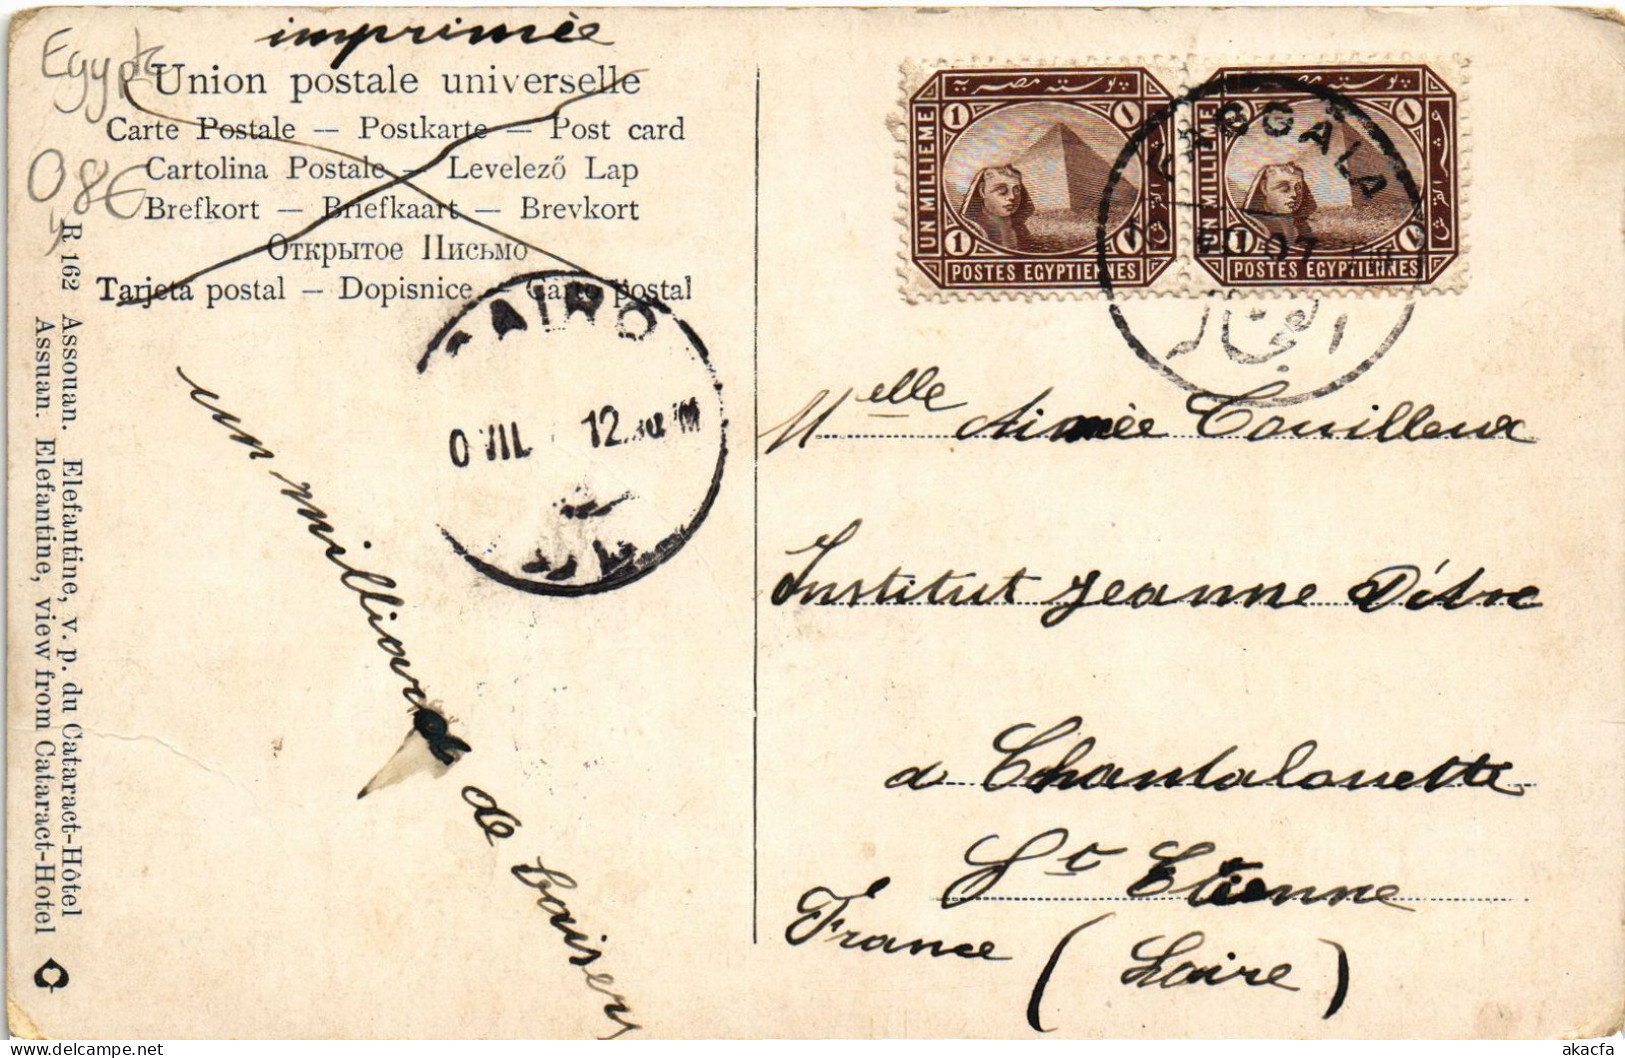 imprimée
Egypte
Union postale universelle
Carte Postale — Postkarte — Post card
Cartolina Postale — Levelező Lap
Brefkort — Briefkaart — Brevkort
Открытое Письмо
Tarjeta postal — Dopisnice — Carte postal
086
R 162 Assouan. Elefantine, v. p. du Cataract-Hôtel
Assuan. Elefantine, view from Cataract-Hotel
CAIRO
VII
12
un milliard de baisers
بوسته مصريه
UN MILLIEME
1
POSTES EGYPTIENNES
بوسته مصريه
UN MILLIEME
1
POSTES EGYPTIENNES
FAGGALA
VII 07
الفجالة
Melle Aimée Couilleux
Institut Jeanne D'arc
a Chantalouette
St Etienne
France (Loire)
akacfa